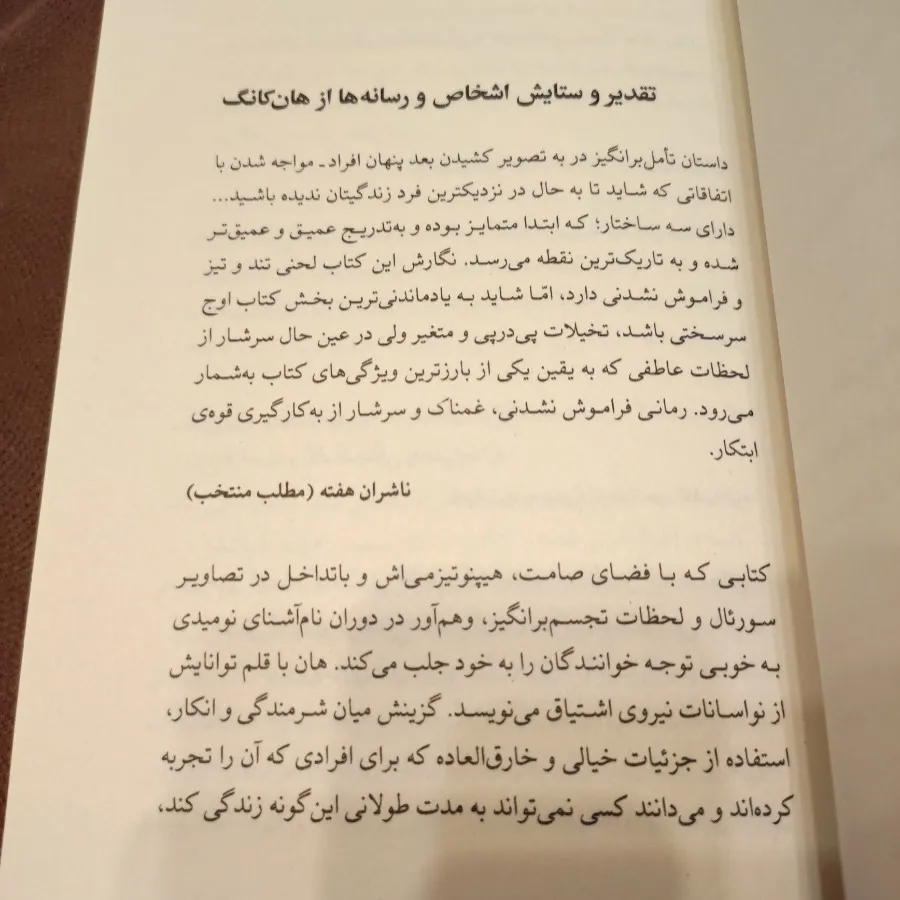 تقدیر و ستایش اشخاص و رسانه‌ها از هان‌کانگ
داستان تأمل‌برانگیز در به تصویر کشیدن بعد پنهان افراد ـ مواجه شدن با
اتفاقاتی که شاید تا به حال در نزدیکترین فرد زندگیتان ندیده باشید...
دارای سه ساختار؛ که ابتدا متمایز بوده و به‌تدریج عمیق و عمیق‌تر
شده و به تاریک‌ترین نقطه می‌رسد. نگارش این کتاب لحنی تند و تیز
و فراموش نشدنی دارد، امّا شاید به یادماندنی‌ترین بخش کتاب اوج
سرسختی باشد، تخیلات پی‌درپی و متغیر ولی در عین حال سرشار از
لحظات عاطفی که به یقین یکی از بارزترین ویژگی‌های کتاب به‌شمار
می‌رود. رمانی فراموش نشدنی، غمناک و سرشار از به‌کارگیری قوه‌ی
ابتکار.
ناشران هفته (مطلب منتخب)
کتابی که با فضای صامت، هیپنوتیزمی‌اش و باتداخل در تصاویر
سورئال و لحظات تجسم‌برانگیز، وهم‌آور در دوران نام‌آشنای نومیدی
به خوبی توجه خوانندگان را به خود جلب می‌کند. هان با قلم توانایش
از نواسانات نیروی اشتیاق می‌نویسد. گزینش میان شرمندگی و انکار،
استفاده از جزئیات خیالی و خارق‌العاده که برای افرادی که آن را تجربه
کرده‌اند و می‌دانند کسی نمی‌تواند به مدت طولانی این‌گونه زندگی کند،